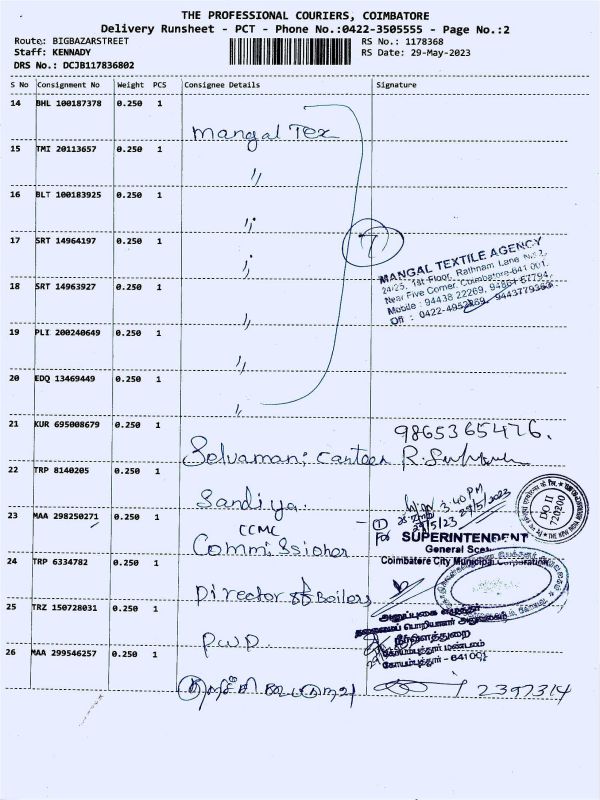 THE PROFESSIONAL COURIERS, COIMBATORE
Delivery Runsheet - PCT - Phone No.:0422-3505555 - Page No.:2
Route: BIGBAZARSTREET
RS No.: 1178368
Staff: KENNADY
RS Date: 29-May-2023
DRS No.: DCJB117836802
S No Consignment No Weight PCS Consignee Details Signature
14 BHL 100187378 0.250 1
Mangal Tex
15 TMI 20113657 0.250 1
"
16 BLT 100183925 0.250 1
"
17 SRT 14964197 0.250 1
"
7
MANGAL TEXTILE AGENCY
24/25, 1st Floor, Rathnam Lane
Near Five Corner, Coimbatore-641 001.
Mobile : 94438 22269,
Off : 0422-4952269, 9443779363
18 SRT 14963927 0.250 1
"
19 PLI 200240649 0.250 1
"
20 EDQ 13469449 0.250 1
"
21 KUR 695008679 0.250 1
9865365476.
Selvamani canteen
22 TRP 8140205 0.250 1
Sandiya
3.40 PM
29/5/2023
23 MAA 298250271 1 0.250 1
CCMC
Commissioner
29/5/23
For SUPERINTENDENT
General Section
Coimbatore City Municipal Corporation
DO II
720200
24 TRP 6334782 0.250 1
Director of Boilers
25 TRZ 150728031 0.250 1
PWD
அனுப்புகை எழுத்தர்
தலைமைப் பொறியாளர் அலுவலகம்
நீர்வளத்துறை
கோயம்புத்தூர் மண்டலம்
கோயம்புத்தூர் - 641001
26 MAA 299546257 0.250 1
2397314